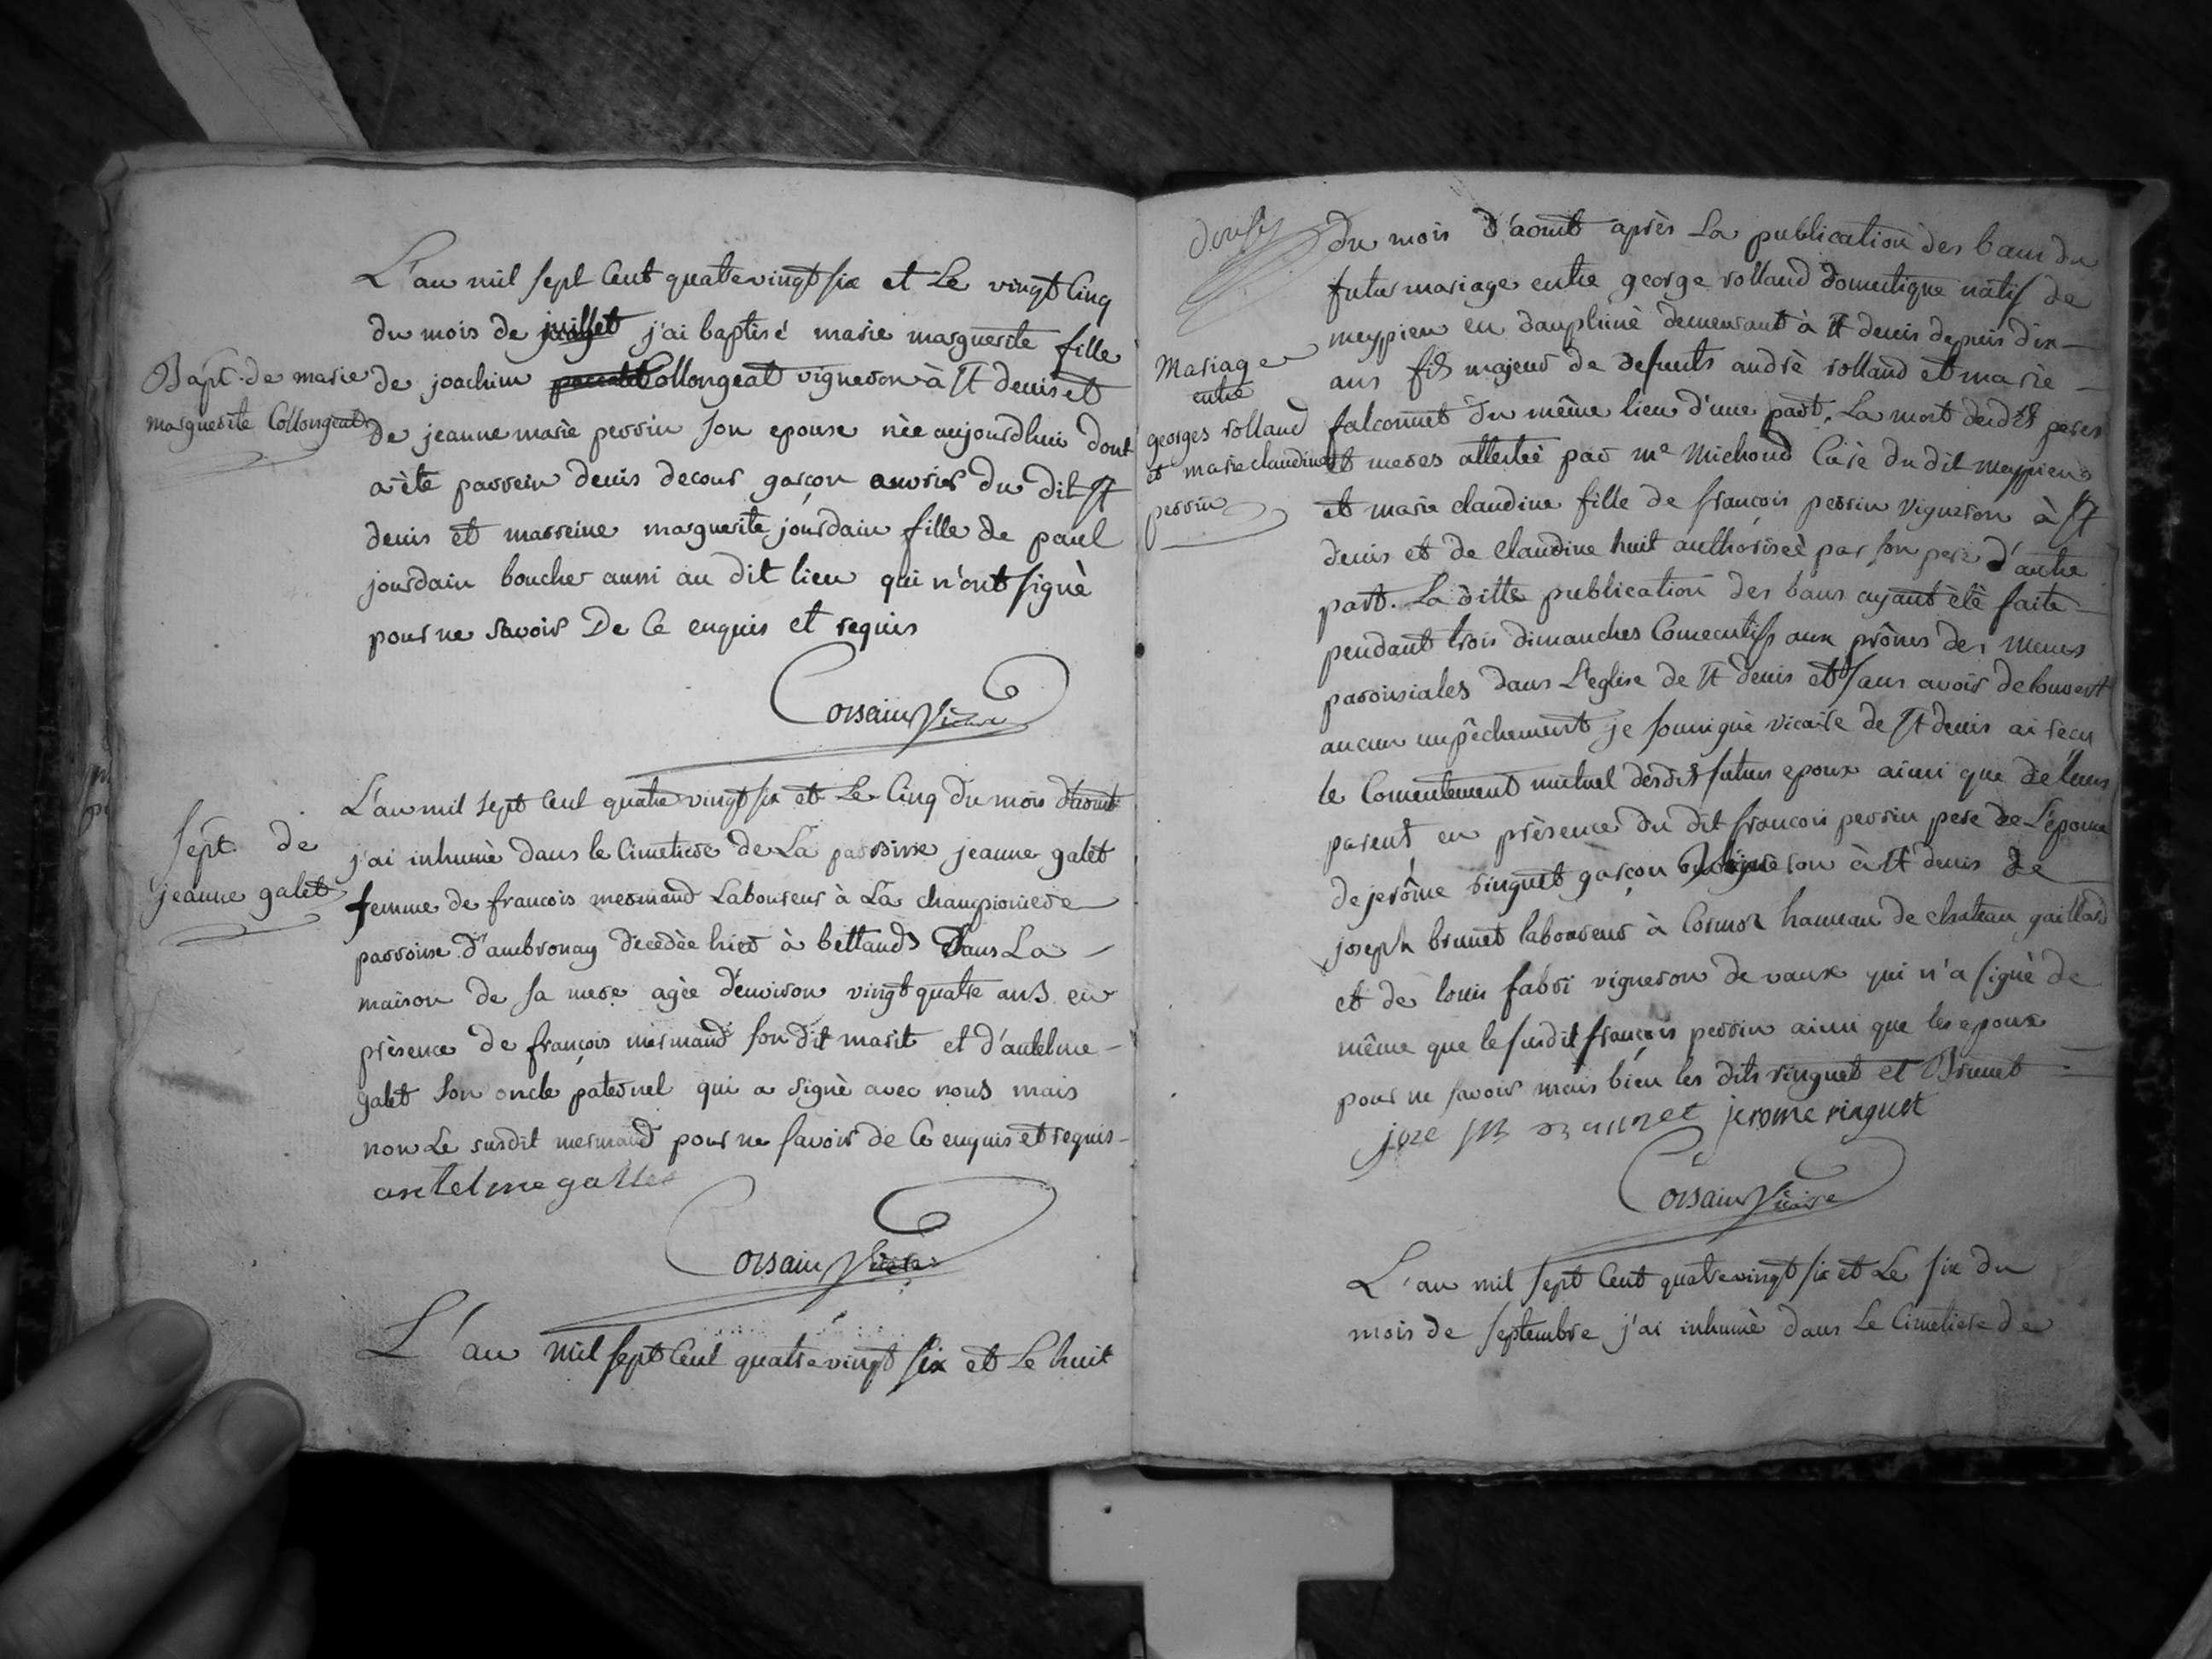 L'an mil sept cent quatrevingt six et le vingt cinq
du mois de juillet j'ai baptisé marie marguerite fille
Bapt. de marie
marguerite Collongeat
de joachim Collongeat vigneron à St denis et
de jeanne marie perrin son epouse née aujourdhui dont
a èté parrein denis decour garçon du dit St
denis et marreine marguerite jourdain fille de paul
jourdain boucher aussi au dit lieu qui n'ont signè
pour ne savoir De ce enquis et requis
Corsain Vicaire
L'an mil sept cent quatre vingt six et Le Cinq du mois d'aout
Sept. de
jeanne galet
j'ai inhumè dans le Cimetiere de La parroisse jeanne galet
femme de francois mermand Laboureur à La championiere
parroisse d'ambronay decedèe hier à bettand Dans La
maison de sa mere agèe d'environ vingt quatre ans en
prèsence de françois mermand son dit marit et d'antelme
galet son oncle paternel qui a signè avec nous mais
non Le susdit mermand pour ne savoir de Ce enquis et requis
antelme galle
Corsain Vicaire
L'an mil sept Cent quatrevingt six et Le huit
du mois d'aout après La publication des bans du
futur mariage entre george rolland domestique natif de
meypieu en dauphinè demeurant à St denis depuis dix
Mariage
entre
georges rolland
et marie claudine
perrin
ans fils majeur de defunts andrè rolland et marie
falconnet du même lieu d'une part. La mort desdts peres
et meres attestée par me Michoud Curé du dit meypieu
et marie claudine fille de françois perrin vigneron à St
denis et de Claudine huit authoriseè par son pere d'autre
part. La ditte publication des bans ayant étè faite
pendant trois dimanches Consecutifs aux prônes des messes
paroissiales dans L'eglise de St denis et sans avoir decouvert
aucun empêchement je soussigné vicaire de St denis ai recu
le Consentement mutuel desdts futurs epoux ainsi que de leurs
parents en prèsence du dit francois perrin pere de L'épouse
de jerôme ringuet garçon vigneron à St denis de
joseph brunet laboureur à Cormoz hameau de chateau gaillard
et de louis fabri vigneron de vaux qui n'a signè de
même que le susdit françois perrin ainsi que les epoux
pour ne savoir mais bien les dits ringuet et Brunet
jerome ringuet
Corsain Vicaire
L'an mil sept Cent quatrevingt six et Le six du
mois de septembre j'ai inhumè dans Le Cimetiere de